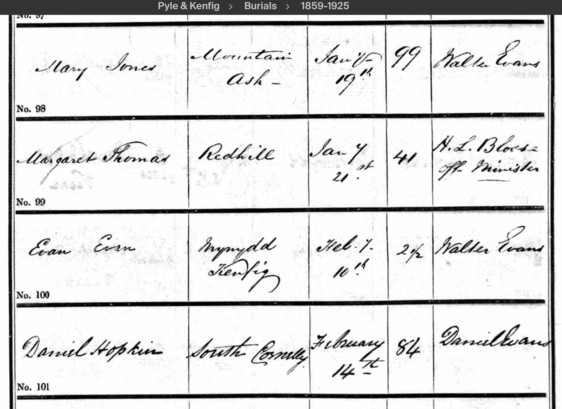 Pyle & Kenfig > Burials > 1859-1925
No. 97
Mary Jones Mountain Ash - Jany 19th 99 Walter Evans
No. 98
Margaret Thomas Redhill Jany 21st 41 H. L. Off. Minister
No. 99
Evan Evan Mynydd Kenfig Feb. 10th 2½ Walter Evans
No. 100
Daniel Hopkin South Cornelly February 14th 84 Daniel Evans
No. 101